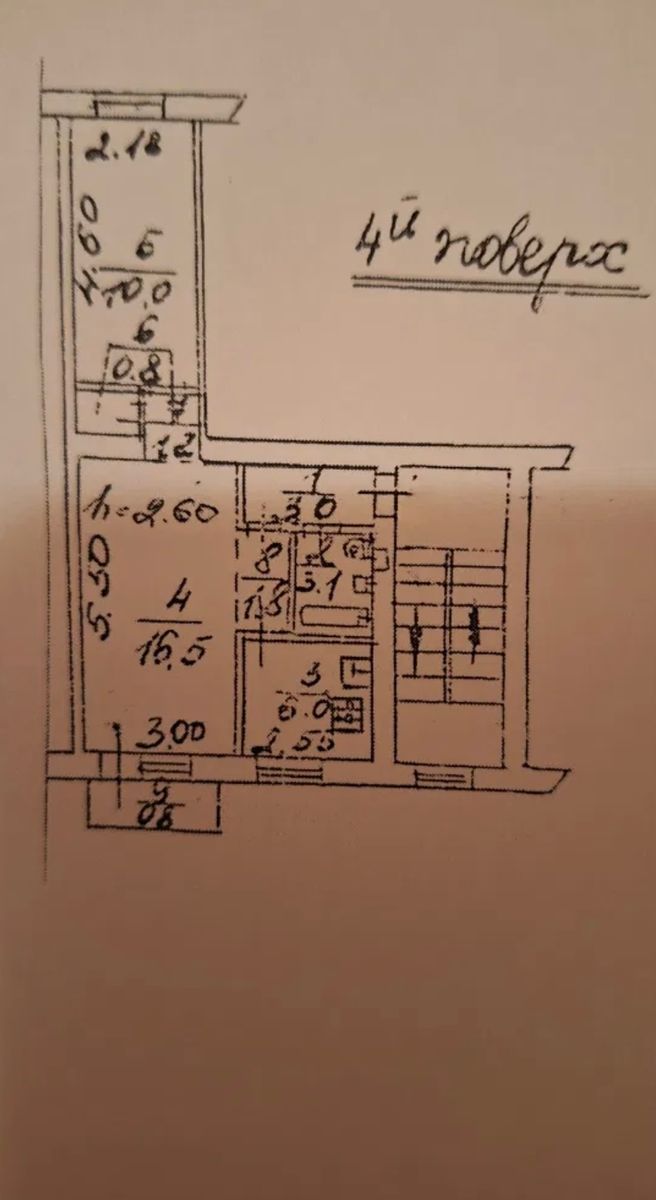 2.18
4ий поверх
4.60
5
10.0
6
0.8
h=2.60
1
3.0
5.50
4
16.5
8
1.5
2
3.1
3
6.0
3.00
2.55
9
08